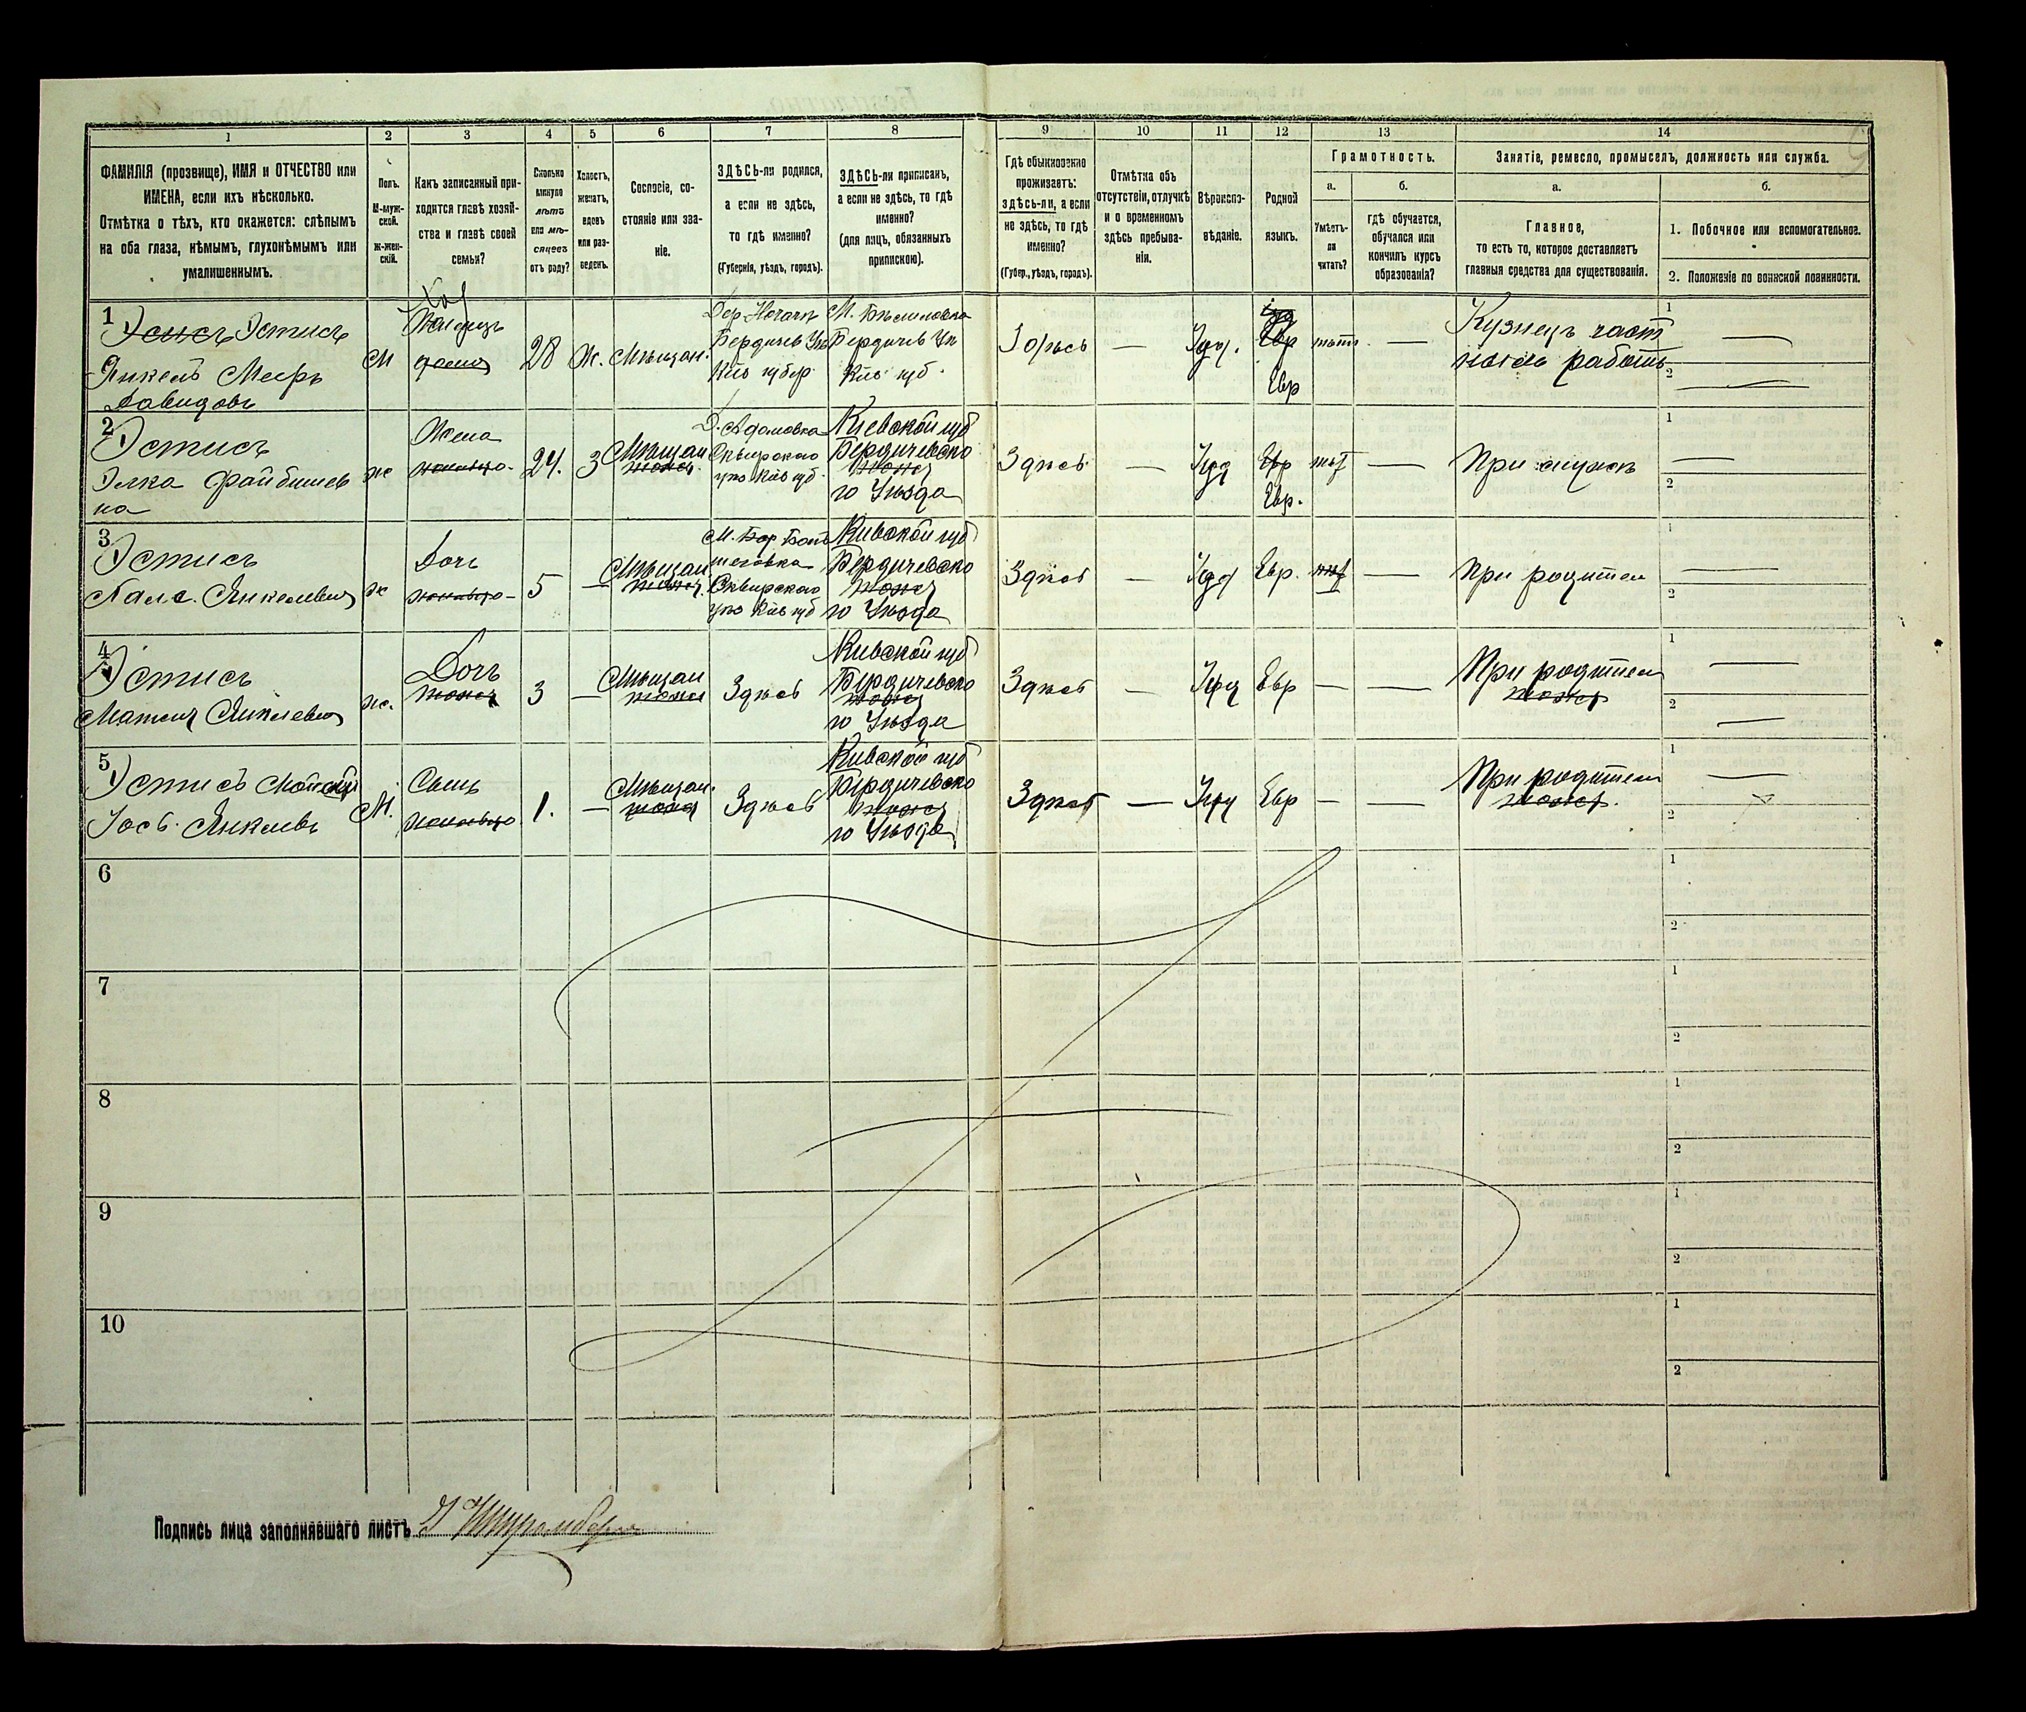 1 2 3 4 5 6 7 8 9 10 11 12 13 14
ФАМИЛІЯ (прозвище), ИМЯ и ОТЧЕСТВО или
ИМЕНА, если ихъ нѣсколько.
Отмѣтка о тѣхъ, кто окажется: слѣпымъ
на оба глаза, нѣмымъ, глухонѣмымъ или
умалишеннымъ.
Полъ.
М-муж-
ской.
Ж-жен-
скій.
Какъ записанный при-
ходится главѣ хозяй-
ства и главѣ своей
семьи?
Сколько
минуло
лѣтъ
или мѣ-
сяцевъ
отъ роду?
Холостъ,
женатъ,
вдовъ
или раз-
веденъ.
Сословіе, со-
стояніе или зва-
ніе.
ЗДѢСЬ-ли родился,
а если не здѣсь,
то гдѣ именно?
(Губернія, уѣздъ, городъ).
ЗДѢСЬ-ли приписанъ,
а если не здѣсь, то гдѣ
именно?
(для лицъ, обязанныхъ
припискою).
Гдѣ обыкновенно
проживаетъ:
здѣсь-ли, а если
не здѣсь, то гдѣ
именно?
(Губер., уѣздъ, городъ).
Отмѣтка объ
отсутствіи, отлучкѣ
и о временномъ
здѣсь пребыва-
ніи.
Вѣроиспо-
вѣданіе.
Родной
языкъ.
Грамотность.
а.
Умѣетъ-
ли
читать?
б.
гдѣ обучается,
обучался или
кончилъ курсъ
образованія?
Занятіе, ремесло, промыселъ, должность или служба.
а.
Главное,
то есть то, которое доставляетъ
главныя средства для существованія.
б.
1. Побочное или вспомогательное.
2. Положеніе по воинской повинности.
1
Эстисъ
Янкель Мееръ
Давидовъ
М
Хоз
28
Ж.
Мѣщан.
Бердичев Уѣ
Кіев губер.
Бердичев Уѣ
Кіев губ.
Здѣсь
—
Іуд.
Евр
—
Кузнецъ
2
Эстисъ
Элка Файбишев
на
ж
Жена
24.
З
Мѣщан
Д. Адамовка
Сквирского
уѣз Кіев губ.
Кіевской губ
Бердичевско
го Уѣзда
Здѣсь
—
Іуд
Евр.
—
При мужѣ
3
Эстисъ
ж
Дочь
5
—
Мѣщан
Сквирского
уѣз Кіев губ
Кіевской губ
Бердичевско
го Уѣзда
Здѣсь
—
Іуд
Евр.
—
При родител
4
Эстисъ
ж.
Дочь
3
—
Мѣщан
Здѣсь
Кіевской губ
Бердичевско
го Уѣзда
Здѣсь
—
Іуд
Евр
—
—
При родител
5
Эстисъ
Іось Янкелевъ
М.
Сынъ
1.
—
Мѣщан.
Здѣсь
Кіевской губ
Бердичевско
го Уѣзда
Здѣсь
—
Іуд
Евр
—
—
При родител
6
7
8
9
10
Подпись лица заполнявшаго листъ